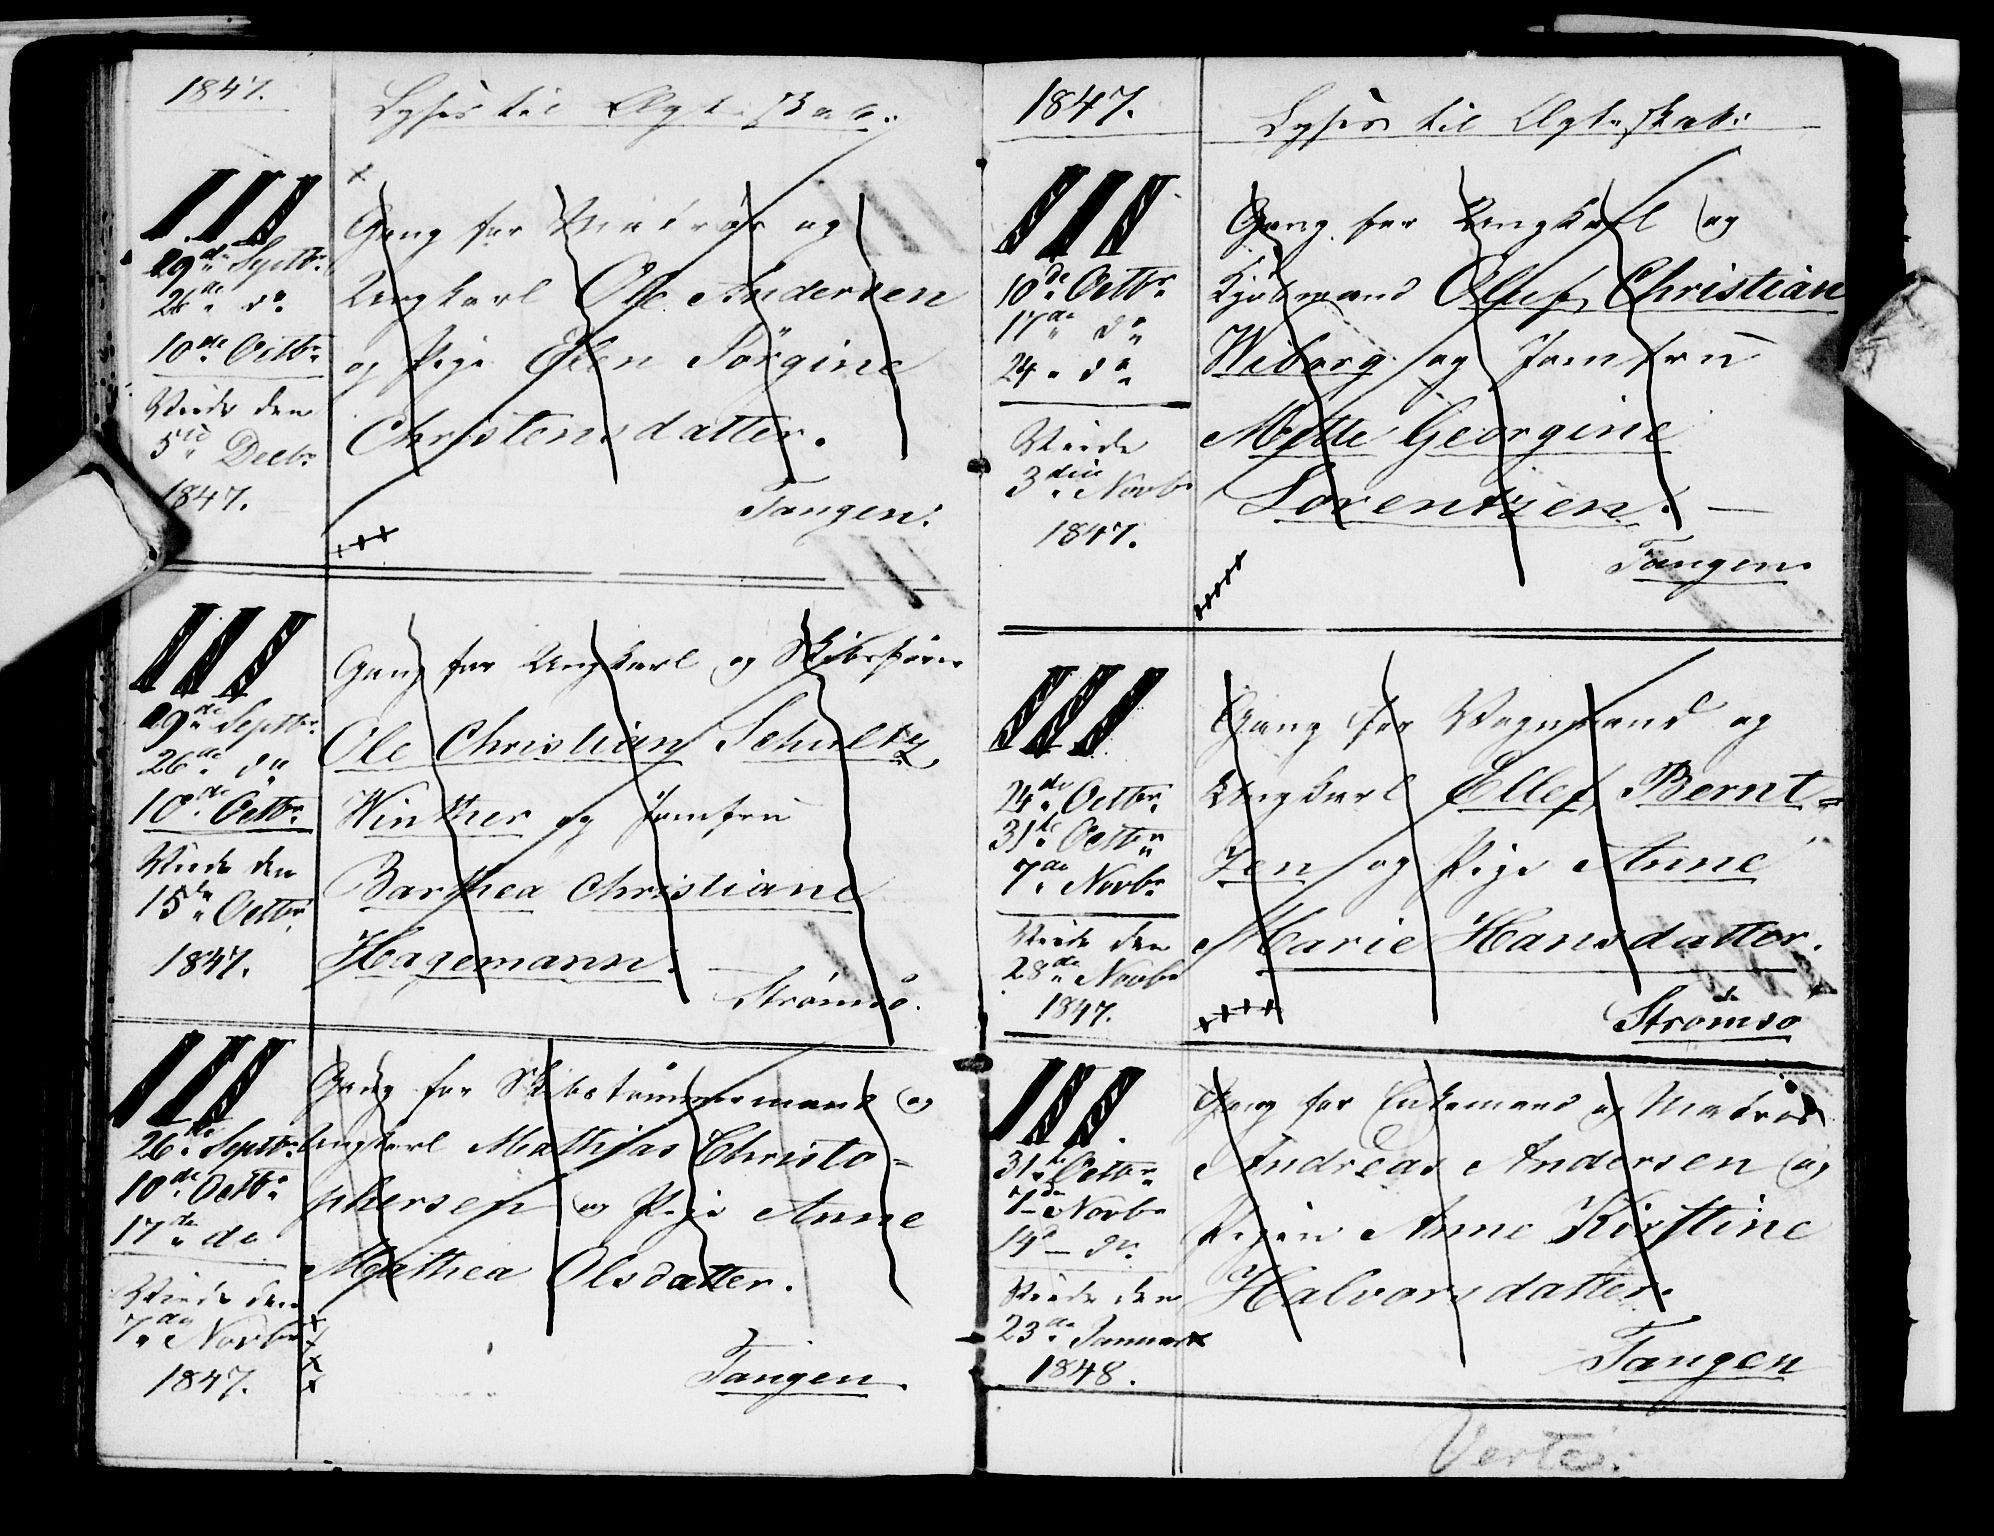 1847.
Lyses til Ægteskab.
III
19de Septbr
26de do
10de Octbr
Viede den
5te Decbr
1847.
Gang for Matros og
Ungkarl Ole Andersen
og Pige Elen Jörgine
Christensdatter.
Tangen.
III
19de Septbr
26de do
10de Octbr
Viede den
15de Octbr
1847.
Gang for Ungkarl og Skibsfører
Ole Christian Schultz
Winther og Jomfru
Barthea Christiane
Hagemann.
Strømsö.
III
26de Septbr
10de Octbr
17de do
Viede den
7de Novbr
1847.
Gang for Skibstømmermand og
Ungkarl Mathias Christo=
phersen og Pige Anne
Mathea Olsdatter.
Tangen.
1847.
Lyses til Ægteskab.
III
10de Octbr
17de do
24 do
Viede
3die Novbr
1847.
Gang for Ungkarl og
Kjøbmand Oluf Christian
Wiborg og Jomfru
Mette Georgine
Lorentzen.
Tangen.
III
24de Octbr
31te Octbr
7de Novbr
Viede den
28de Novbr
1847.
Gang for Vognmand og
Ungkarl Ellef Bernt=
zen og Pige Anne
Marie Hansdatter.
Strømsø
III.
31te Octbr
7de Novbr
14de do
Viede den
23de Januar
1848.
Gang for Enkemand og Matros
Andreas Andersen og
Pigen Anne Kirstine
Halvorsdatter.
Tangen
Verte: